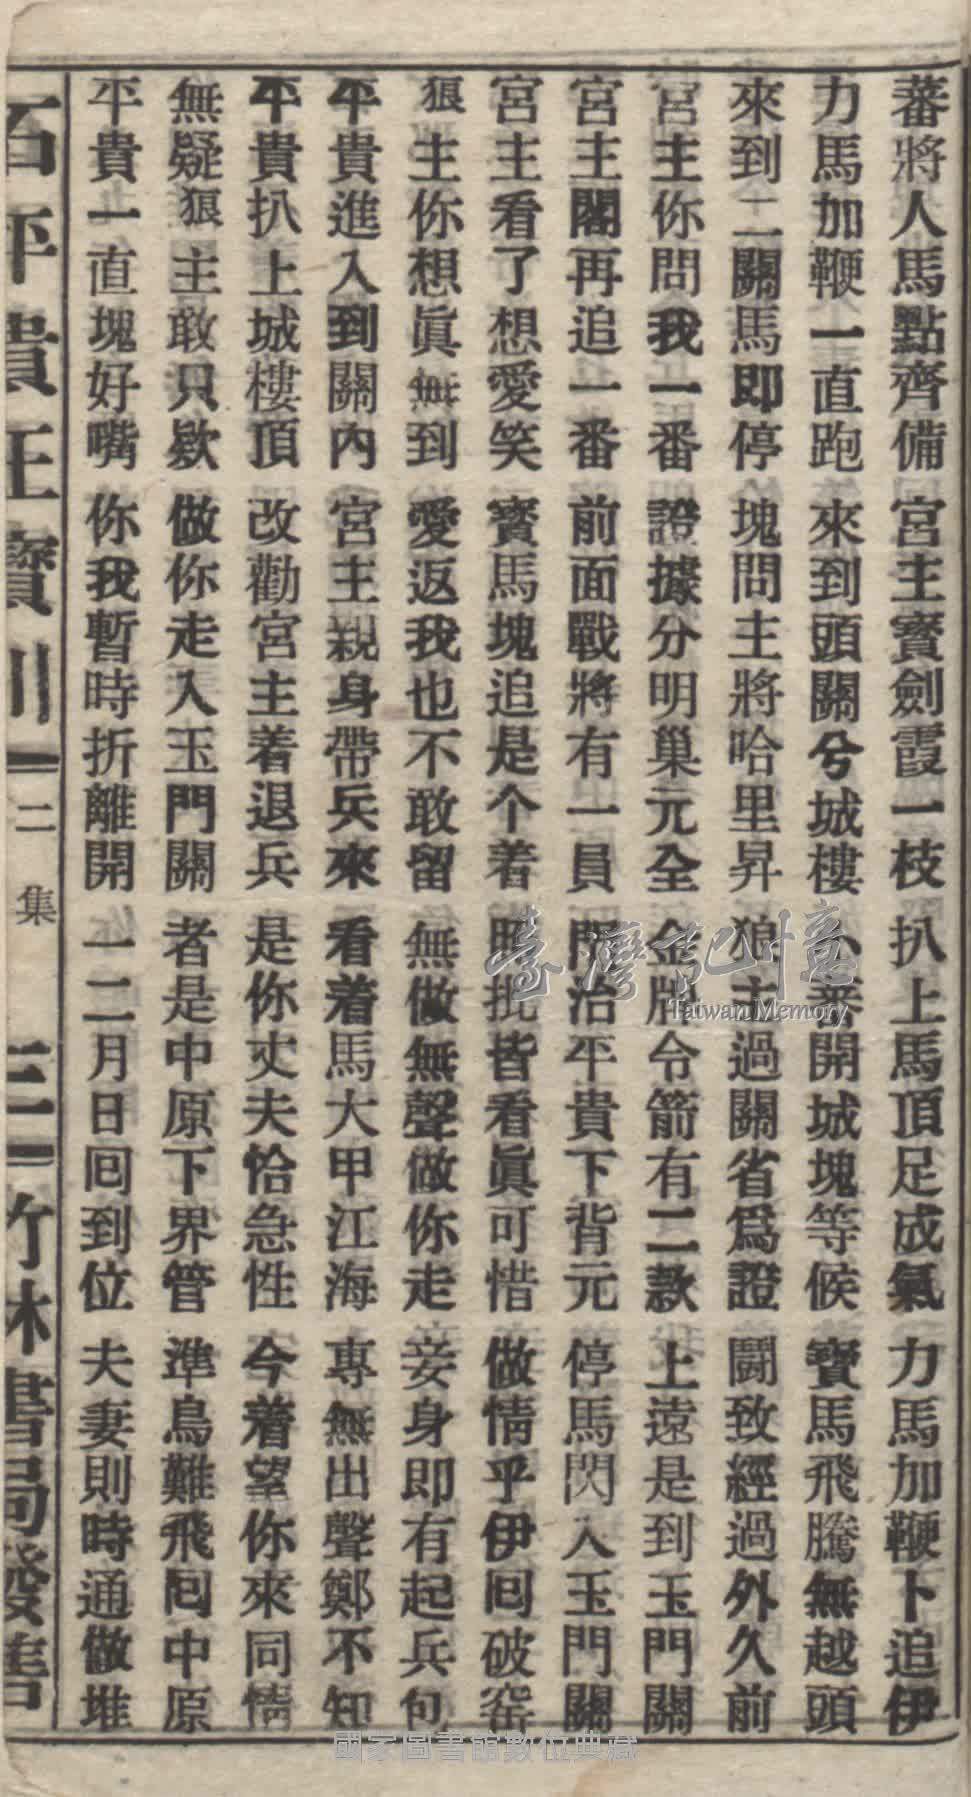 蕃將人馬點齊備　宮主寶劍霞一枝　扒上馬頂足成氣　力馬加鞭卜追伊
力馬加鞭一直跑　來到頭關兮城樓　小蕃開城塊等候　寶馬飛騰無越頭
來到二關馬即停　塊問主將哈里昇　狼主過關省為證　鬪致經過外久前
宮主你問我一番　證據分明巢元全　金牌令箭有二款　上遠是到玉門關
宮主閣再追一番　前面戰將有一員　閗治平貴下背元　停馬閃入玉門關
宮主看了想愛笑　寶馬塊追是个着　照批皆看眞可惜　做情乎伊回破窑
狼主你想眞無到　愛返我也不敢留　無做無聲做你走　妾身即有起兵包
平貴進入到關內　宮主親身帶兵來　看着馬大甲江海　專無出聲鄭不知
平貴扒上城樓頂　改勸宮主着退兵　是你丈夫恰急性　今着望你來同情
無疑狼主敢只欵　做你走入玉門關　者是中原下界管　準鳥難飛回中原
平貴一直塊好嘴　你我暫時折離開　一二月日回到位　夫妻則時通做堆
石平貴王寶川　二集　三　竹林書局發售
臺灣記憶
Taiwan Memory
國家圖書館數位典藏